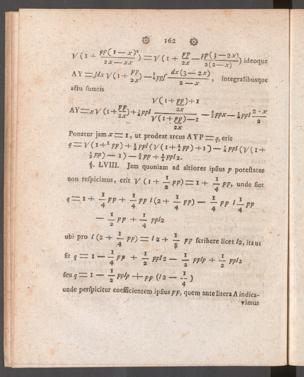 162
V(1 + pp(1 − x)²/(2x − xx)) = V(1 + pp/2x − pp(3 − 2x)/2(2 − x)) ideoque
AY = ∫dx V(1 + pp/2x) − ¼pp∫ dx(3 − 2x)/(2 − x), integrationibusque
actu sumtis
AY = x V(1 + pp/2x) + ¼ppl (V(1 + pp/2x) + 1)/(V(1 + pp/2x) − 1) − ½ppx − ¼ppl (2 − x)/2
Ponatur jam x = 1, ut prodeat arcus AYP = q, erit
q = V(1 + ½pp) + ¼ppl (V(1 + ½pp) + 1) − ¼ppl (V(1 +
½pp) − 1) − ½pp + ¼ppl2.
§. LVIII. Jam quoniam ad altiores ipsius p potestates
non respicimus, erit V(1 + ½ pp) = 1 + ¼ pp, unde fiet
q = 1 + ¼ pp + ¼ pp l (2 + ¼ pp) − ¼ pp l ¼ pp
− ½ pp + ¼ ppl2
ubi pro l (2 + ¼ pp) = l2 + ⅛ pp scribere licet l2, ita ut
fit q = 1 − ¼ pp + ½ ppl2 − ½ pplp + ½ ppl2
seu q = 1 − ½ pplp + pp (l2 − ¼)
unde perspicitur coefficientem ipsius pp, quem ante litera A indica-
vimus